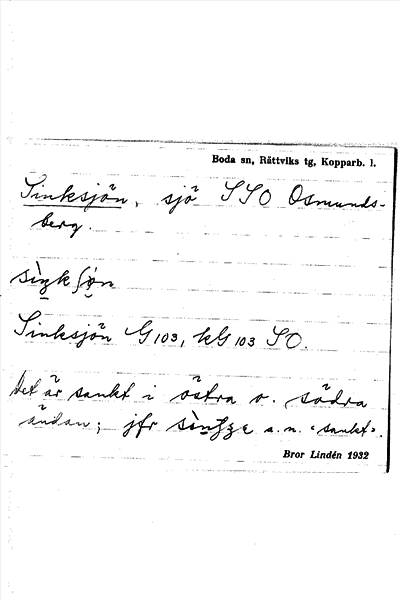 Boda sn, Rättviks tg, Kopparb. l.
Sinksjön, sjö SSO Osmunds-
berg.
Sinksjön G 103, kG 103 SO.
Det är sankt i östra o. södra
ändan; jfr a. n. "sankt".
Bror Lindén 1932